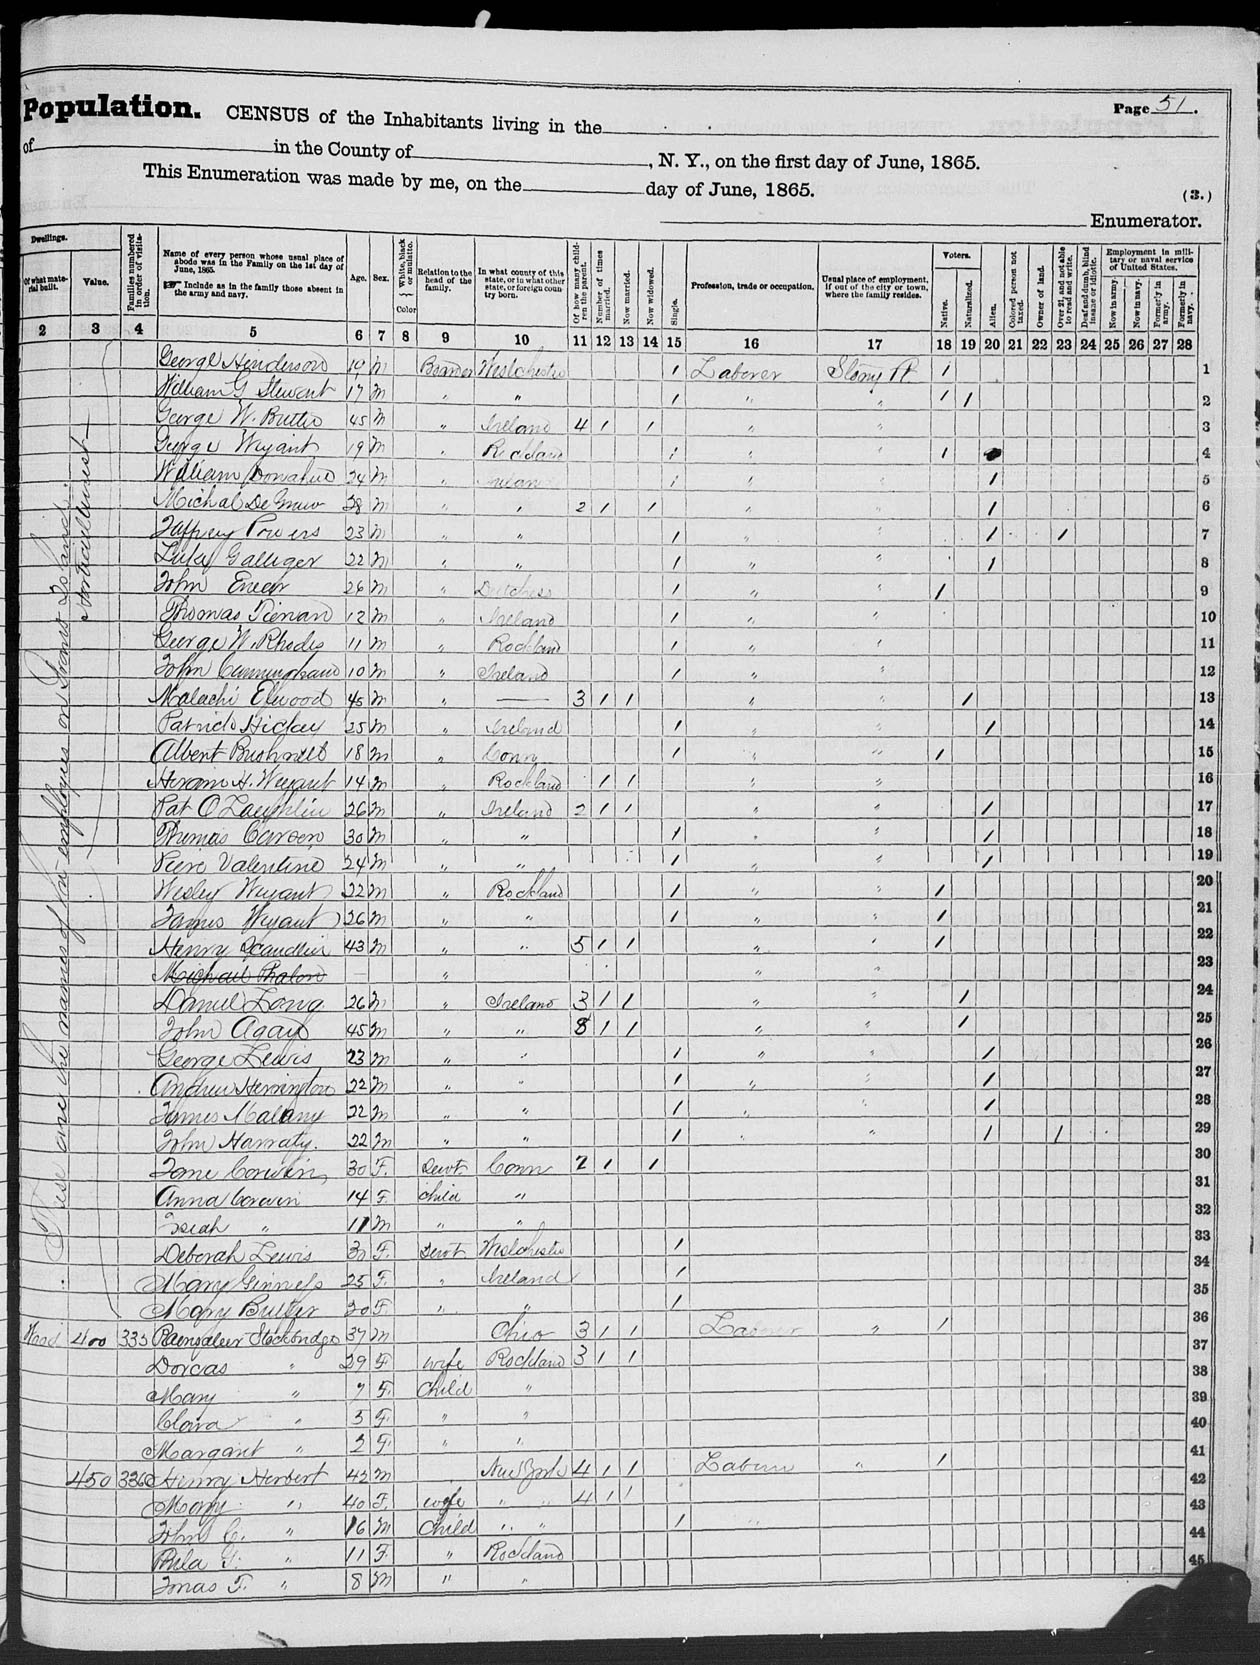 Population. CENSUS of the Inhabitants living in the
Page 51.
of in the County of , N. Y., on the first day of June, 1865.
This Enumeration was made by me, on the day of June, 1865.
(3.)
Enumerator.
Dwellings.
Of what material built.
Value.
Families numbered in order of visitation.
Name of every person whose usual place of abode was in the Family on the 1st day of June, 1865.
Include as in the family those absent in the army and navy.
Age.
Sex.
White, black or mulatto.
Color
Relation to the head of the family.
In what county of this state, or in what other state, or foreign country born.
Of how many children the parent.
Number of times married.
Now married.
Now widowed.
Single.
Profession, trade or occupation.
Usual place of employment, if out of the city or town, where the family resides.
Voters.
Native.
Naturalized.
Alien.
Colored person not taxed.
Owner of land.
Over 21, and not able to read and write.
Deaf and dumb, blind insane or idiotic.
Employment in military or naval service of United States.
Now in army.
Now in navy.
Formerly in army.
Formerly in navy.
2 3 4 5 6 7 8 9 10 11 12 13 14 15 16 17 18 19 20 21 22 23 24 25 26 27 28
George Henderson 19 M Boarder Westchester / Laborer Stony Pt / 1
William G Stewart 17 M " " / " " / / 2
George W. 45 M " Ireland 4 / / " " 3
George Weyant 19 M " Rockland / " " / 4
William Donahue 24 M " / " " / 5
Michal 28 M " " 2 / / " " / 6
Powers 23 M " " / " " / / 7
Luke Galliger 22 M " " / " " / 8
John 26 M " Dutchess / " " / 9
Thomas Tiernan 12 M " Ireland / " " 10
George W. Rhodes 11 M " Rockland / " " 11
John Cunningham 10 M " Ireland / " " 12
Malachi Elwood 45 M " — 3 / / " " / 13
Patrick Hickey 25 M " Ireland / " " / 14
Albert Bushnell 18 M " Conn / " " / 15
Hiram H. Weyant 14 M " Rockland / / " " 16
Pat O Laughlin 26 M " Ireland 2 / / " " / 17
Thomas 30 M " " / " " / 18
Valentine 24 M " " / " " / 19
Wesley Weyant 22 M " Rockland / " " / 20
James Weyant 26 M " " / " " / 21
Henry 43 M " " 5 / / " " / 22
Michael Phalon — " " " 23
Daniel Lang 26 M " Ireland 3 / / " " / 24
John Agan 45 M " " 8 / / " " / 25
George Lewis 23 M " " / " " / 26
Andrew Herrington 22 M " " / " " / 27
James Malany 22 M " " / " " / 28
John Harraty. 22 M " " / " " / / 29
Jane Corwin 30 F. Servt. Conn 2 / / 30
Anna Corwin 14 F. Child " 31
Isiah " 11 M " " 32
Deborah Lewis 30 F. Servt Westchester / 33
Mary Ginnels 25 F. " Ireland / 34
Mary Butler 20 F " " / 35
Wood 400 335 Stockbridge 37 M Ohio 3 / / Laborer " / 36
Dorcas " 29 F wife Rockland 3 / / 37
Mary " 7 F. Child " 38
Clara " 5 F. " " 39
Margaret " 2 F. " " 40
450 336 Henry Herbert 42 M New York 4 / / Laborer " / 41
Mary " 40 F. wife " " 4 / / 42
John C. " 16 M Child " " / 43
" 11 F. " Rockland 44
Jonas F. " 8 M " " 45
These are the names of the employees on Grassy Island